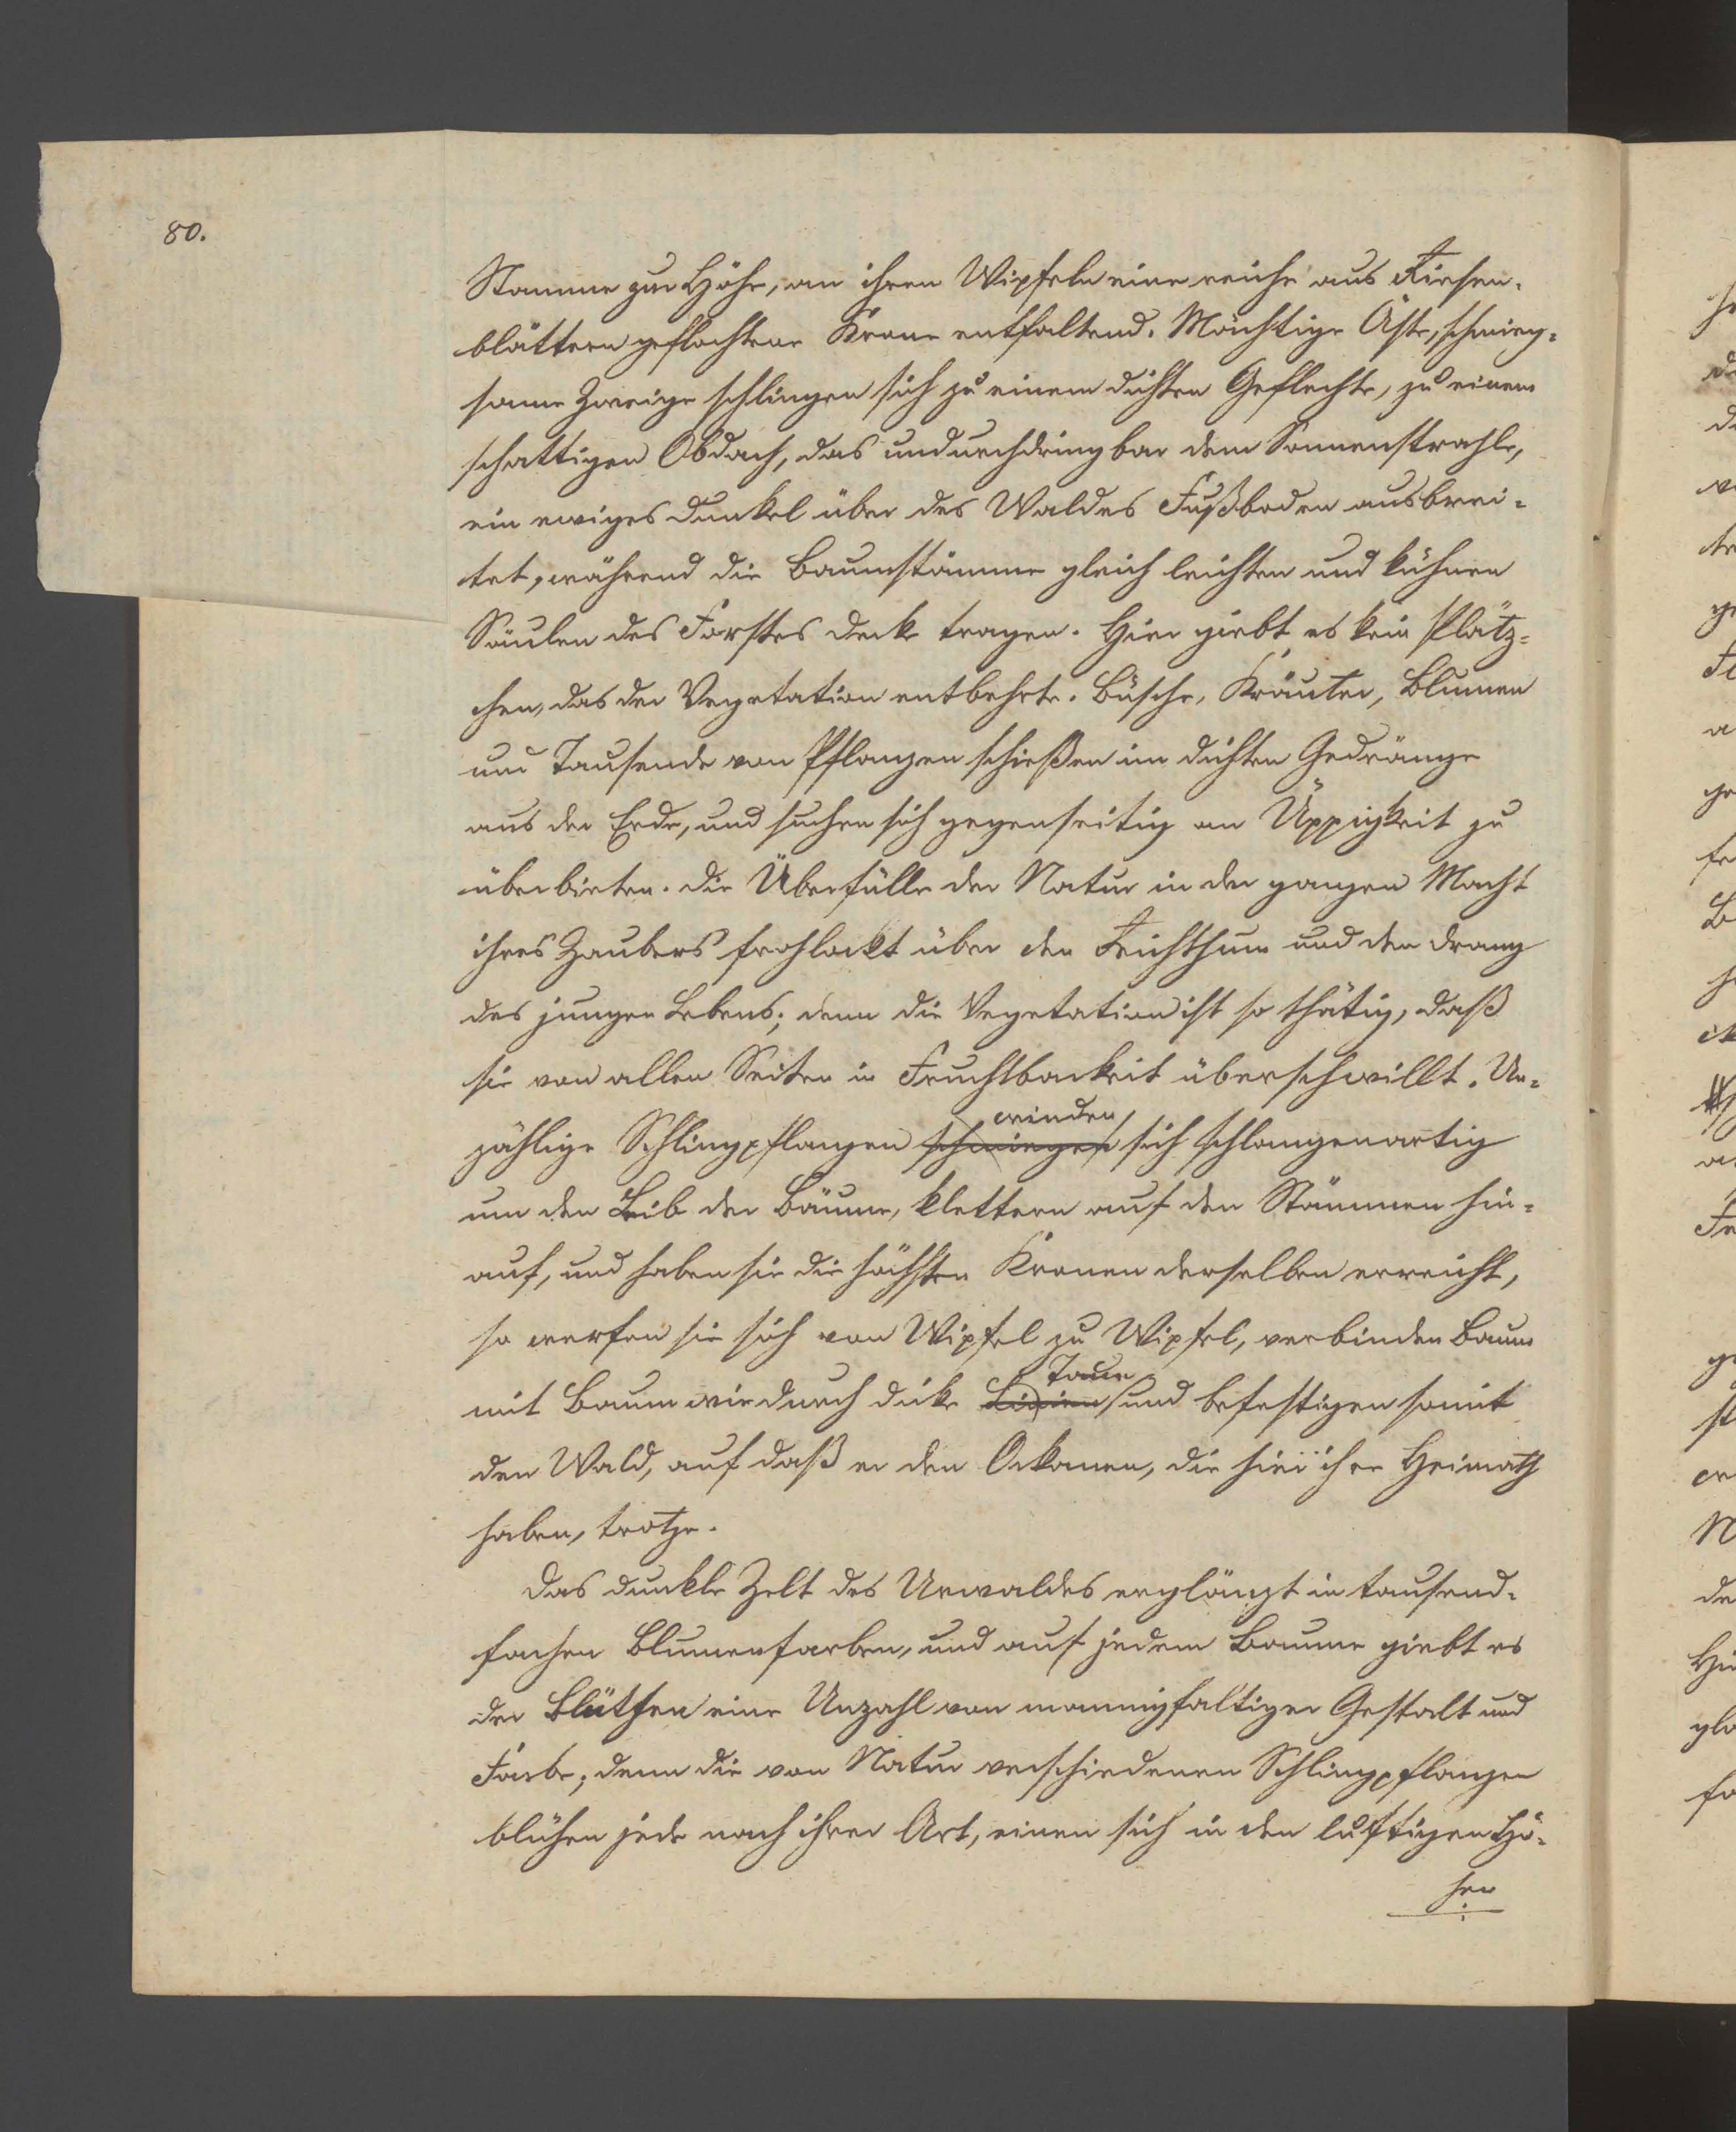 80.
Stamme zur Höhe, an ihren Wipfeln eine reiche aus Riesen-
blättern geflochtene Krone entfaltend. Mächtige Äste, schmieg-
same Zweige schlingen sich zu einem dichten Geflechte, zu einem
schattigen Obdach, das undurchdringbar dem Sonnenstrahle,
ein ewiges Dunkel über des Waldes Fußboden ausbrei-
tet, während die Baumstämme gleich leichten und kühnen
Säulen des Forstes Decke tragen. Hier giebt es kein Plätz-
chen, das der Vegetation entbehrte. Büsche, Kräuter, Blumen
und Tausende von Pflanzen schießen im dichten Gedränge
aus der Erde, und suchen sich gegenseitig an Üppigkeit zu
überbieten. Die Überfülle der Natur in der ganzen Macht
ihres Zaubers frohlockt über den Reichthum und den Drang
des jungen Lebens; denn die Vegetation ist so thätig, daß
sie von allen Seiten in Fruchtbarkeit überschwillt. Un-
winden
zählige Schlingpflanzen schmiegen sich schlangenartig
um den Leib der Bäume, klettern auf den Stämmen hin-
auf, und haben sie die höchsten Kronen derselben erreicht,
so werfen sie sich von Wipfel zu Wipfel, verbinden Baum
Taue
mit Baum wie durch dicke und befestigen somit
den Wald, auf daß er den Orkanen, die hier ihre Heimath
haben, trotze.
Das dunkle Zelt des Urwaldes erglänzt in tausend-
fachen Blumenfarben, und auf jedem Baume giebt es
der Blüthen eine Unzahl von mannigfaltiger Gestalt und
Farbe; denn die von Natur verschiedenen Schlingpflanzen
blühen jede nach ihrer Art, einen sich in den luftigen Hö-
hen